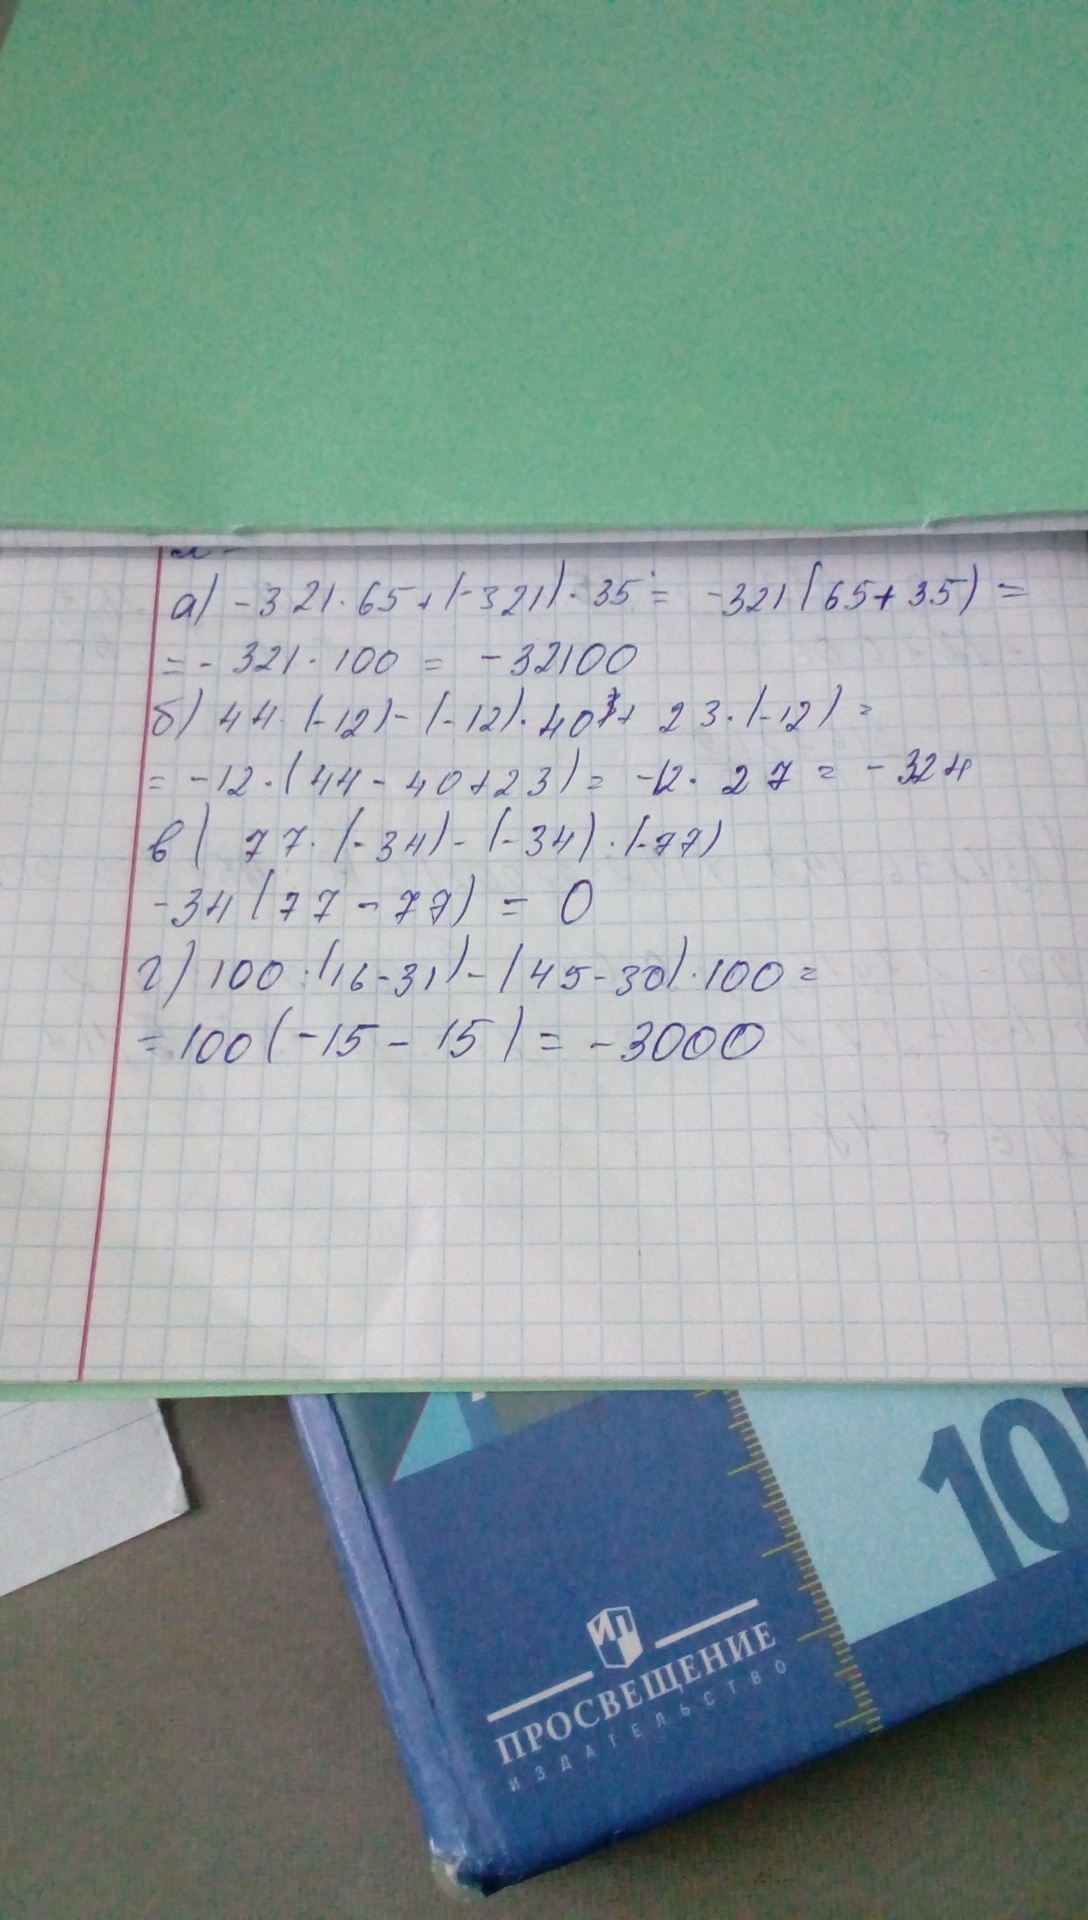 а) -321·65+(-321)·35= -321(65+35)=
=-321·100= -32100
б) 44·(-12)-(-12)·40+ 23·(-12)=
= -12·(44-40+23)= -12·27= -324
в) 77·(-34)-(-34)·(-77)
-34(77-77) = 0
г) 100·(16-31)-(45-30)·100=
= 100(-15-15)= -3000
10
ИП
ПРОСВЕЩЕНИЕ
ИЗДАТЕЛЬСТВО